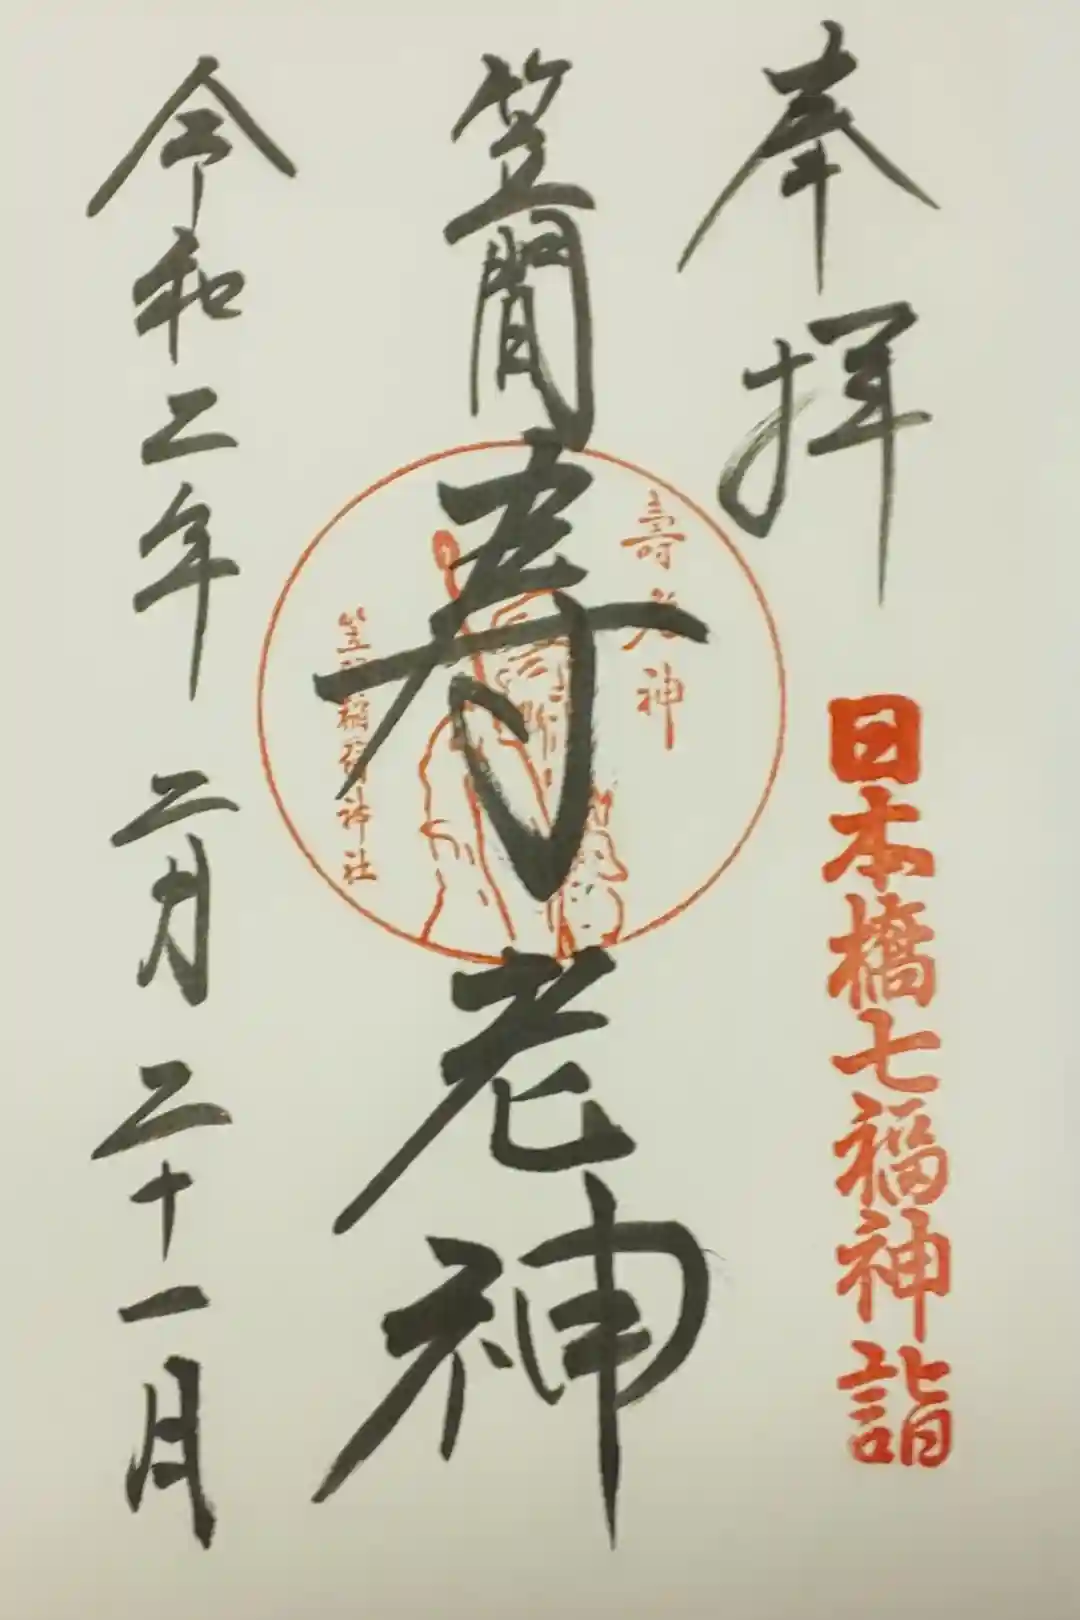 奉拝
日本橋七福神詣
笠間寿老神
壽老神
笠間稲荷神社
令和二年二月二十一日